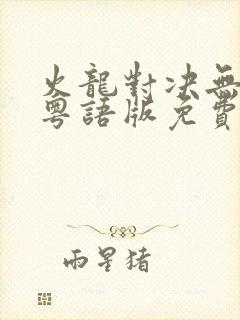 火龍對決無
粵語版免費
雨星猪